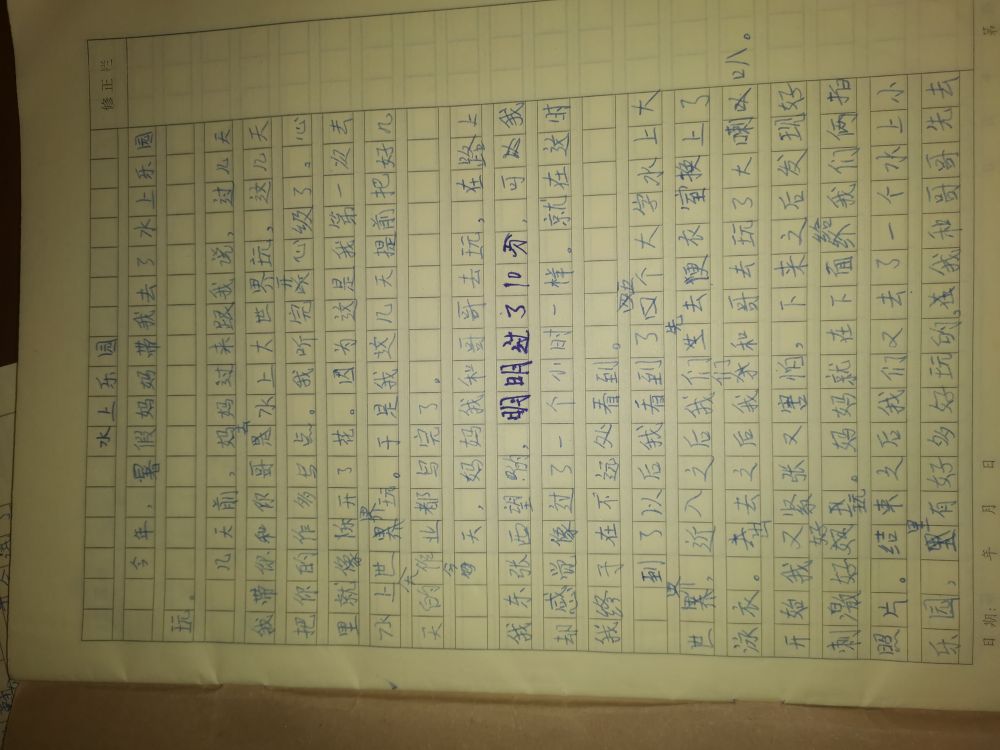 修正栏
水上乐园
今年，暑假妈妈带我去了水上乐园
玩。
几天前，妈妈过来跟我说，过几天
我带你和你哥去水上大世界玩，这几天
把你的作多写点。我听完开心级了。心
里就像你开了花。因为这是我第一次去
水上大世界玩。于是我这几天提前把好几
天的作业都写完了。
今天，妈妈我和哥哥去玩，在路上
我东张西望的，明明过了10分，可我
却感觉像过了一个小时一样。就在这时
我终于在不远处看到。
到了以后我看到了四个大字水上大
世界，近入之后我们先去便衣室换上了
泳衣。出去之后我们和哥去玩了大喇叭。
开始我又紧张又害怕，下来之后发现好
刺激好好玩。妈妈就在下面给我们俩拍
照片。结束之后我们又去了一个水上小
乐园，里有好多好玩的，我和哥哥先去
日期： 年 月 日 第